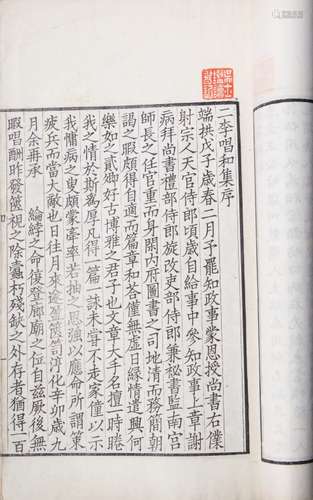 二李唱和集序
端拱戊子歲春二月予罷知政事蒙恩授尚書右僕
射宗人天官侍郎頃歲自給事中參知政事上章謝
病拜尚書禮部侍郎旋改吏部侍郎兼祕書監南宮
師長之任官重而身閑内府圖書之司地清而務簡朝
謁之暇頗得自適而篇章和荅僅無虛日緣情遣興何
樂如之貳卿好古博雅之君子也文章大手名擅一時睠
我之情於斯為厚凡得一篇一詠未嘗不走家僮以示
我慵病之叟頗蒙牽率若抽之思強以應命所謂策
疲兵而當大敵也日往月來遂盈篋笥淳化辛卯歲九
月余再承 綸綍之命復登廊廟之位自茲厥後無
暇唱酬昨發篋視之除蠹朽殘缺之外存者猶得一百